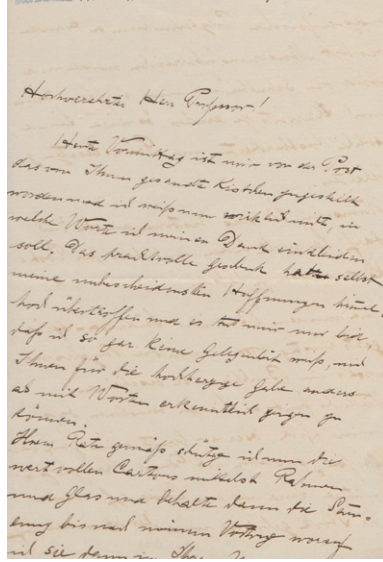 Hochverehrter Herr Professor!
Heute Vormittag ist mir von der Post
das von Ihnen gesandte Kistchen zugestellt
worden und ich weiß nun wirklich nicht, in
welche Worte ich meinen Dank einkleiden
soll. Das prachtvolle Geschenk hatte selbst
meine unbescheidensten Hoffnungen
hoch übertroffen und es tut mir nur leid,
daß ich so gar keine Gelegenheit weiß, mich
Ihnen für die hochherzige Gabe anders
als mit Worten erkenntlich zeigen zu
können.
Ihrem Rate gemäß schütze ich nun die
wertvollen Cartons mittelst Rahmen
und Glas und behalte dann die Sam-
lung bis nach meinem Vortrag worauf
ich sie dann in